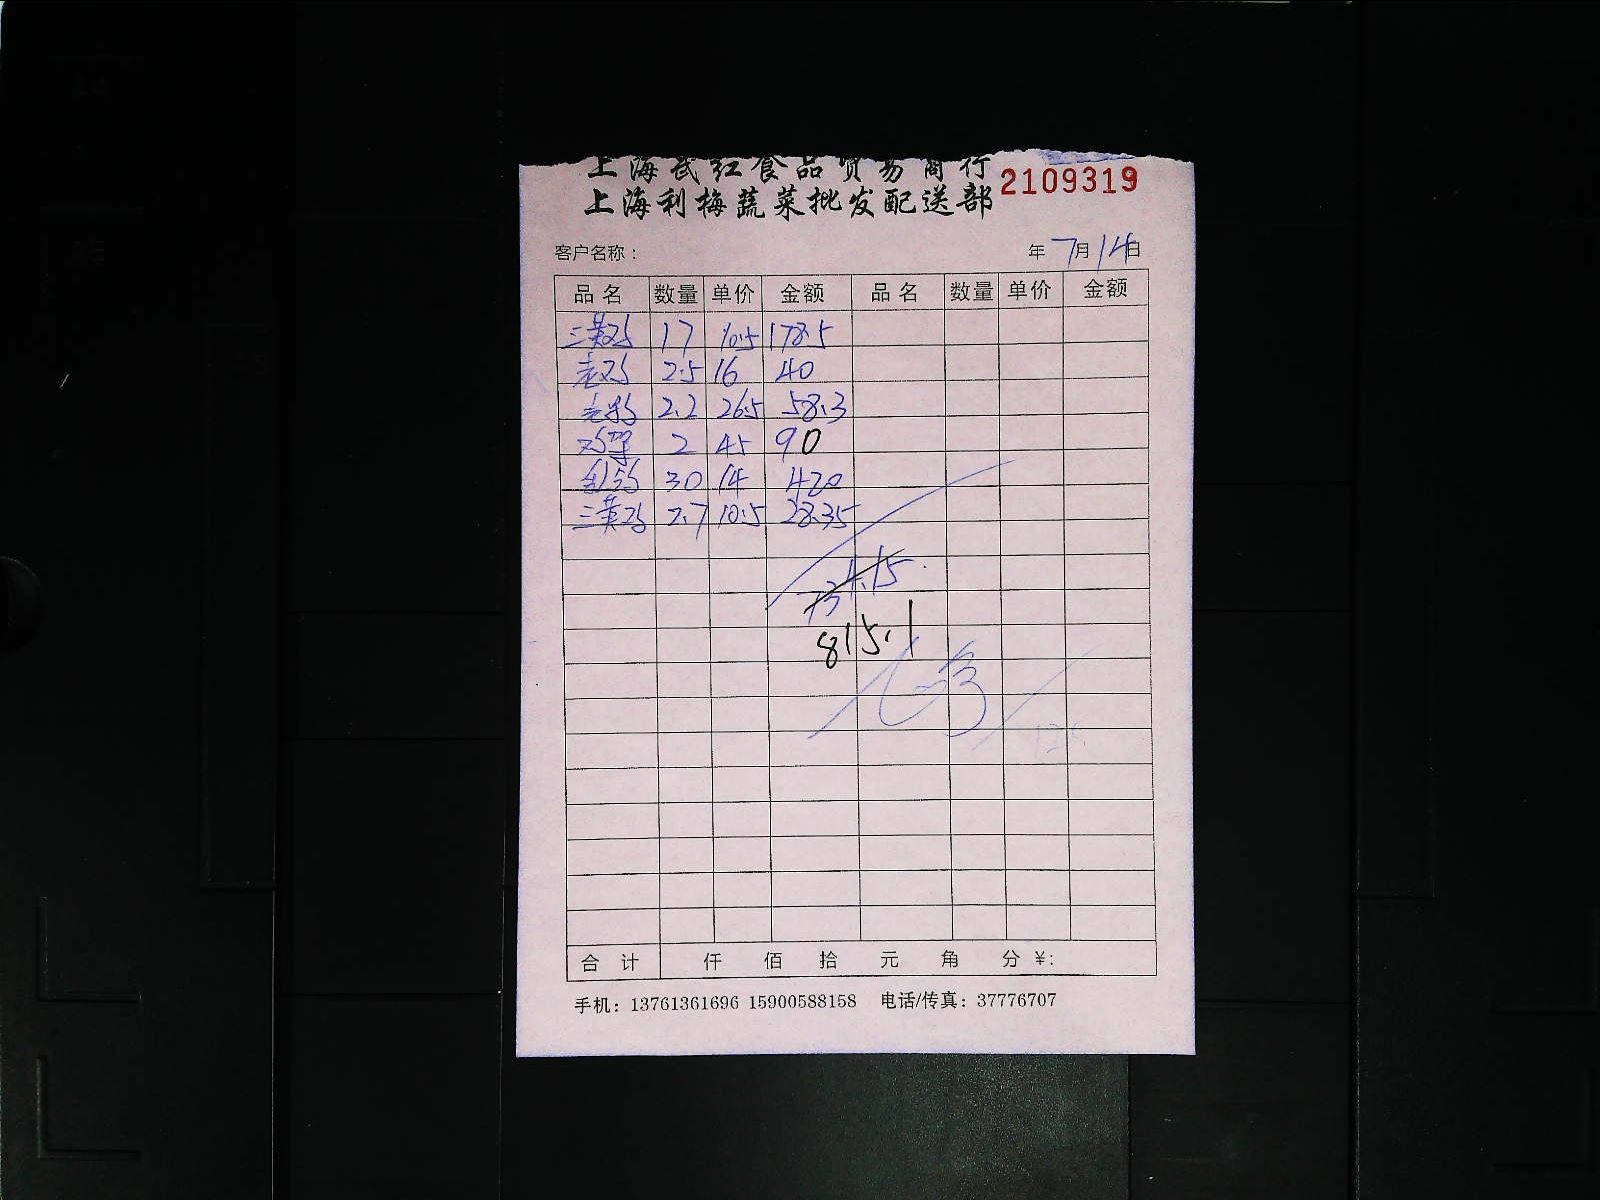 上海武红食品贸易商行
2109319
上海利梅蔬菜批发配送部
客户名称： 年7月14日
品名 数量 单价 金额 品名 数量 单价 金额
三黄鸡 17 10.5 178.5
老鸡 2.5 16 40
2.2 26.5 58.3
鸡架 2 45 90
30 14 420
三黄鸡 2.7 10.5 28.35
815.1
合计 仟 佰 拾 元 角 分 ¥:
手机：13761361696 15900588158 电话/传真：37776707